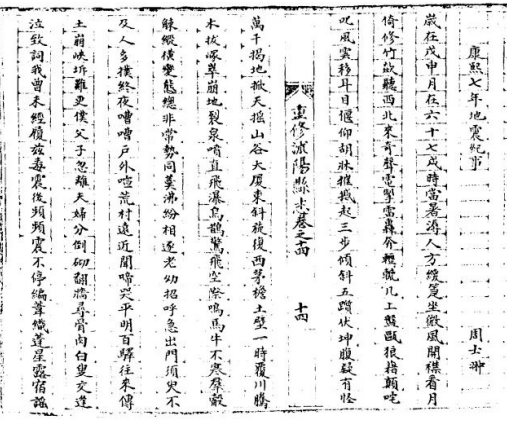 康熙七年地震紀事
周士翀
歲在戊申月在六十七戌時當暑溽人方緩篁坐微風開襟看月
倚修竹忽聽西北來奇聲電掣雷轟
几上盤甌狼藉顛咤
叱風雲移耳目偃仰胡牀摧撼起三步傾斜五躓伏坤腹疑有怪
重修沭陽縣志卷之十四
十四
萬千揭地掀天搖山谷大厦東斜旋復西茅檐土壁一時覆川騰
木拔冢崒崩地裂泉噴直飛瀑烏鵲驚飛空際鳴馬牛不寒群觳
觫縱橫變態總非常勢同羹沸紛相逐老幼招呼急出門須臾不
及人多撲終夜嘈嘈戶外喧荒村遠近聞啼哭平明百驛往來傳
土崩峽坼難更僕父子忽離夫婦分倒砌翻牆尋骨肉白叟交逢
泣致詞我曾未經罹茲毒震後頻頻震不停編葦織蓬星露宿謠